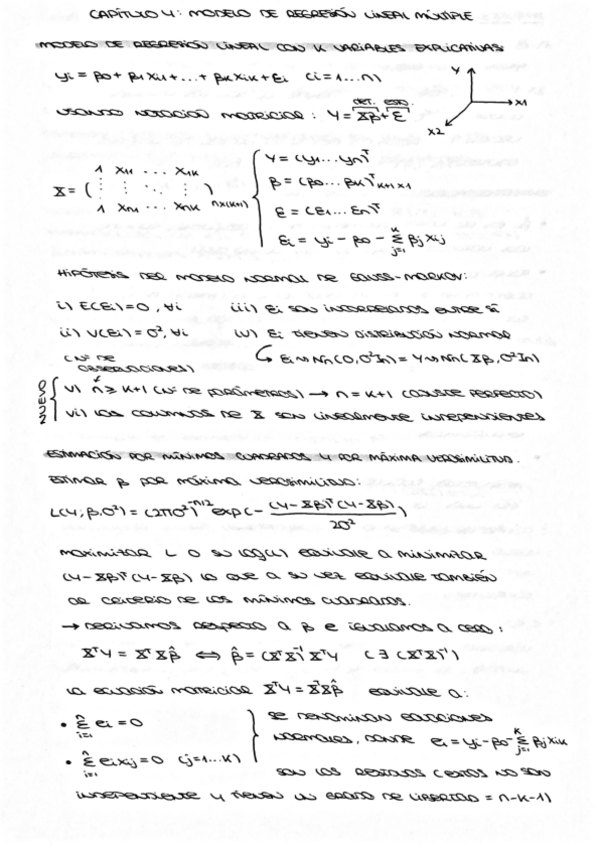 CAPÍTULO 4: MODELO DE REGRESIÓN LINEAL MÚLTIPLE
MODELO DE REGRESIÓN LINEAL CON K VARIABLES EXPLICATIVAS
yi = β0 + β1 Xi1 + ... + βk Xik + Ei (i = 1...n)
DET. ESTO.
USANDO NOTACIÓN MATRICIAL: Y = Xβ + E
Y
X1
X2
X = ( 1 X11 ... X1K ⋮ ⋮ ⋱ ⋮ 1 Xn1 ... XnK ) n×(k+1)
Y = (Y1...Yn)^T
β = (β0...βk)^T k+1×1
E = (E1...En)^T
Ei = yi - β0 - Σ_{j=1}^{K} βj Xij
HIPÓTESIS DEL MODELO NORMAL DE GAUSS-MARKOV:
i) E(Ei) = 0, ∀i iii) Ei SON INCORRELADOS ENTRE SÍ
ii) V(Ei) = σ², ∀i iv) Ei TIENEN DISTRIBUCIÓN NORMAL
↳ Ei ~ Nn(0, σ²In) = Y ~ Nn(Xβ, σ²In)
(Nº DE OBSERVACIONES)
v) n ≥ k+1 (Nº DE PARÁMETROS) → n = k+1 (AJUSTE PERFECTO)
vi) LAS COLUMNAS DE X SON LINEALMENTE INDEPENDIENTES
ESTIMACIÓN POR MÍNIMOS CUADRADOS Y POR MÁXIMA VEROSIMILITUD.
ESTIMAR β POR MÁXIMA VEROSIMILITUD:
L(Y; β, σ²) = (2πσ²)^{-n/2} exp(- (Y - Xβ)^T (Y - Xβ) / 2σ²)
MAXIMIZAR L O SU LOG(L) EQUIVALE A MINIMIZAR
(Y - Xβ)^T (Y - Xβ) LO QUE A SU VEZ EQUIVALE TAMBIÉN
AL CRITERIO DE LOS MÍNIMOS CUADRADOS.
→ DERIVAMOS RESPECTO A β E IGUALAMOS A CERO:
X^T Y = X^T X β̂ ⟺ β̂ = (X^T X)^{-1} X^T Y (∃ (X^T X)^{-1})
LA ECUACIÓN MATRICIAL X^T Y = X^T X β̂ EQUIVALE A:
• Σ_{i=1}^{n} ei = 0
• Σ_{i=1}^{n} ei xij = 0 (j = 1...K)
SE DENOMINAN ECUACIONES
NORMALES, DONDE ei = yi - β0 - Σ_{j=1}^{K} βj Xik
SON LOS RESIDUOS (ESTOS NO SON
INDEPENDIENTE Y TIENEN UN GRADO DE LIBERTAD = n-k-1)